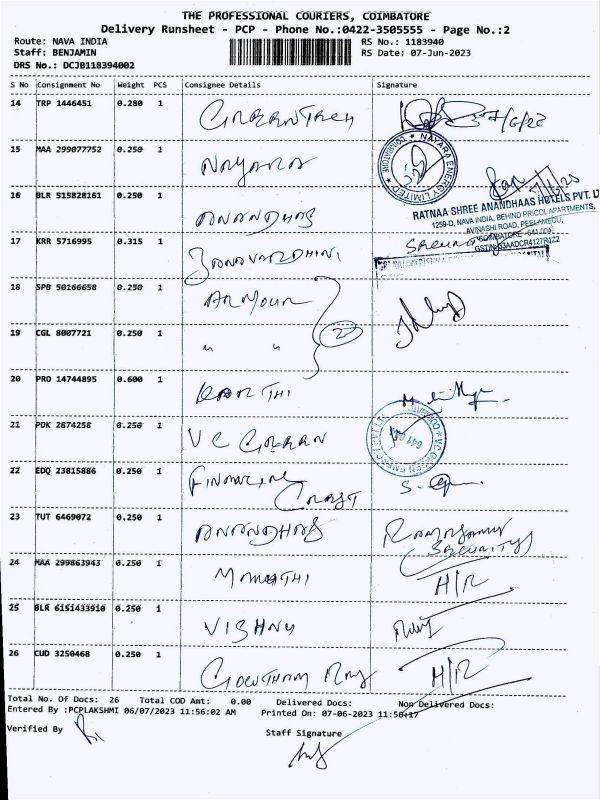 THE PROFESSIONAL COURIERS, COIMBATORE
Delivery Runsheet - PCP - Phone No.:0422-3505555 - Page No.:2
Route: NAVA INDIA RS No.: 1183940
Staff: BENJAMIN RS Date: 07-Jun-2023
DRS No.: DCJB118394002
S No Consignment No Weight PCS Consignee Details Signature
14 TRP 1446451 0.280 1
15 MAA 299077752 0.250 1 NAYARA
NAYARA ENERGY LIMITED
COIMBATORE
16 BLR 515828161 0.250 1 ANANDHAS
RATNAA SHREE ANANDHAAS HOTELS PVT. LT
1259-D, NAVA INDIA, BEHIND PRICOL APARTMENTS,
AVINASHI ROAD, PEELAMEDU,
COIMBATORE - 641 004
17 KRR 5716995 0.315 1
18 SPB 50166658 0.250 1 ARMOUR
19 CGL 8007721 0.250 1 " " 2
20 PRO 14744895 0.600 1 KARTHI
21 PDK 2874258 0.250 1 VC GREEN
22 EDQ 23815886 0.250 1 FINANCIAL
23 TUT 6469072 0.250 1 ANANDHAS
24 MAA 299863943 0.250 1 H/R
25 BLR 6151433910 0.250 1 VISHNU
26 CUD 3250468 0.250 1 GOWTHAM RAJ H/R
Total No. Of Docs: 26 Total COD Amt: 0.00 Delivered Docs: Non Delivered Docs:
Entered By :PCPLAKSHMI 06/07/2023 11:56:02 AM Printed On: 07-06-2023 11:56:17
Verified By Staff Signature